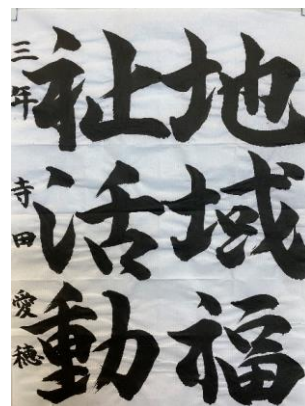 地域福
祉活動
三年 寺田愛穂